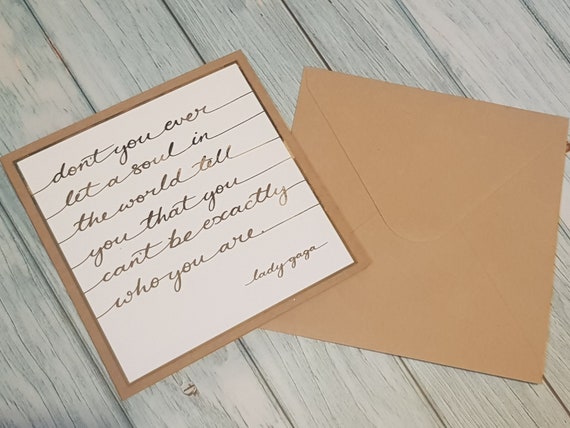 dont you ever
let a soul in
the world tell
you that you
cant be exactly
who you are.
lady gaga